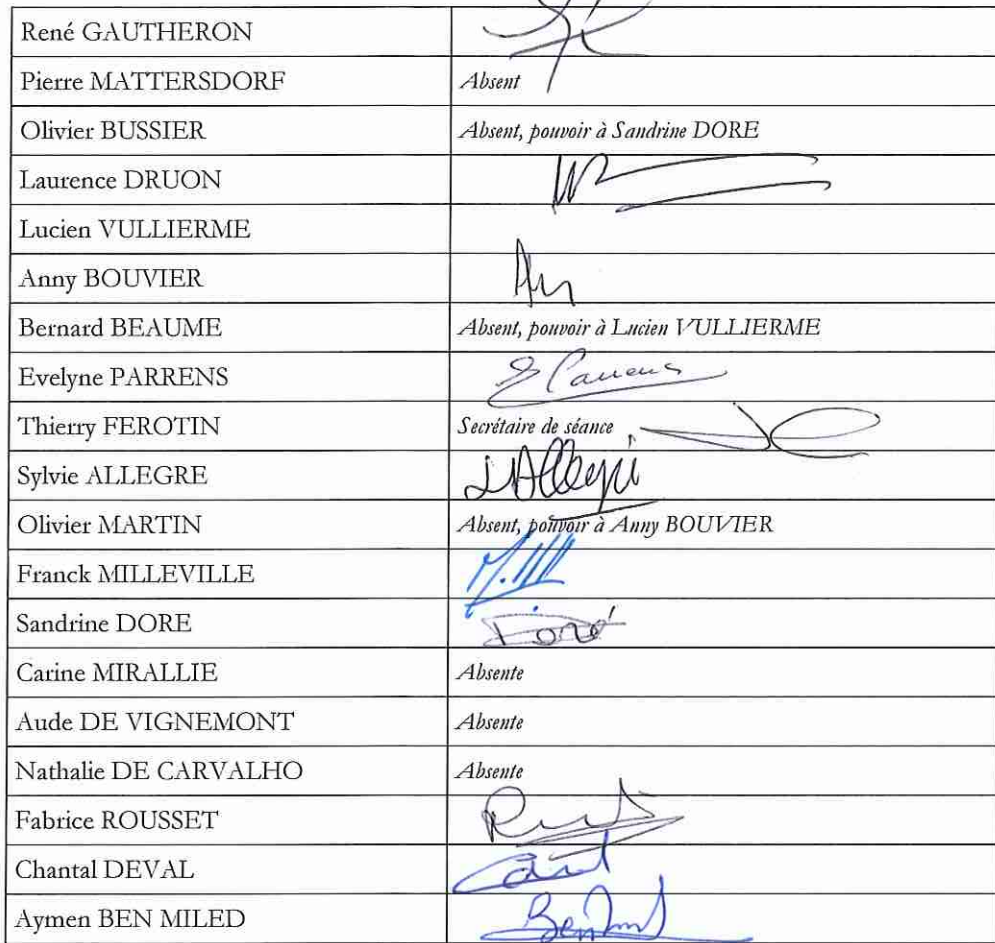 René GAUTHERON
Pierre MATTERSDORF Absent
Olivier BUSSIER Absent, pouvoir à Sandrine DORE
Laurence DRUON
Lucien VULLIERME
Anny BOUVIER
Bernard BEAUME Absent, pouvoir à Lucien VULLIERME
Evelyne PARRENS
Thierry FEROTIN Secrétaire de séance
Sylvie ALLEGRE
Olivier MARTIN Absent, pouvoir à Anny BOUVIER
Franck MILLEVILLE
Sandrine DORE Doré
Carine MIRALLIE Absente
Aude DE VIGNEMONT Absente
Nathalie DE CARVALHO Absente
Fabrice ROUSSET
Chantal DEVAL
Aymen BEN MILED